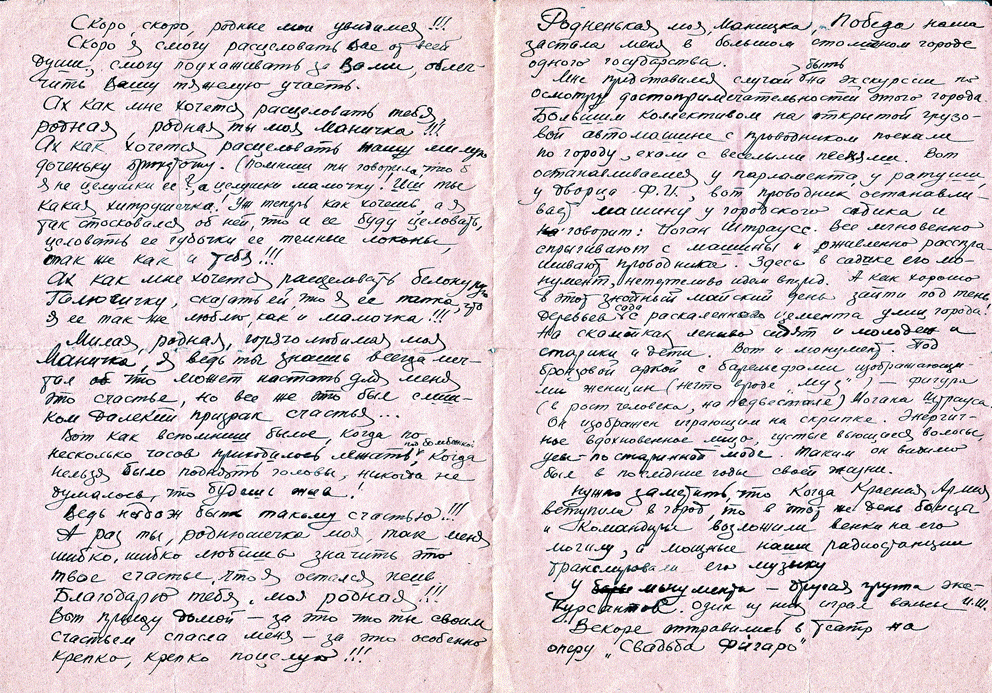 Скоро, скоро, родные мои увидимся!!!
Скоро я смогу расцеловать Вас от всей
души, смогу поухаживать за Вами, облег-
чить Вашу тяжелую участь.
Ах как мне хочется расцеловать тебя
родная, родная ты моя Маничка!!!
Ах как хочется расцеловать нашу милую
доченьку. (Помниш ты говорила, что б
я не целушки ее?, а целушки мамочку! Иш ты
какая хитрушечка! Уж теперь как хочешь, а я
так стосковался об ней, то и ее буду целовать,
целовать ее губычки ее темные локоны,
так же как и тебя!!!
Ах как мне хочется расцеловать белокурую
Галюсичку, сказать ей то я ее папка, что
я ее так же люблю, как и мамочка!!!
Милая, родная, горячо любимая моя
Маничка, я ведь ты знаешь всегда меч-
тал об то может настать для меня
это счастье, но все же это был слиш-
ком далекий призрак счастья...
Вот как вспомниш былое, когда по
несколько часов приходилось лежать под бомбежкой, когда
нельзя было поднять головы, никогда не
думалось, то будешь жив!
Ведь надож быть такому счастью!!!
А раз ты, роднюшечка моя, так меня
шибко, шибко любишь значить это
твое счастье, что я остался жив
Благодарю тебя, моя родная!!!
Вот приеду домой – за это что ты своим
счастьем спасла меня – за это особенно
крепко, крепко поцелую!!!
Родненькая моя, Маничка, Победа наша
застала меня в большом столичном городе
одного государства.
Мне представился случай быть на экскурсии по
осмотру достопримечательностей этого города.
Большим коллективом на открытой грузо-
вой автомашине с проводником поехали
по городу, ехали с веселыми песнями. Вот
останавливаемся у парламента у ратуши,
у дворца Ф.И., вот проводник останавли-
вает машину у городского садика и
говорит: Иоган Штраусс. Все мгновенно
спрыгивают с машины и оживленно расспра-
шивают проводника. Здесь в садике его мо-
нумент, нетерпеливо идем вперед. А как хорошо
в этот знойный майский день зайти под тень
деревьев сада с раскаленного цемента улиц города!
На скамейках лениво сидят и молодежь и
старики и дети. Вот и монумент. Под
бронзовой аркой с барельефами изображающи-
ми женщин (нечто вроде „муз") – фигура
(в рост человека, на пъедестале) Иогана Штрауса.
Он изображен играющим на скрипке. Энергич-
ное вдохновенное лицо, густые вьющиеся волосы,
усы – по старинной моде. Таким он видимо
был в последние годы своей жизни.
Нужно заметить, что когда Красная Армия
вступила в город, то в этот же день бойцы
и командиры возложили венки на его
могилу, а мощные наши радиостанции
транслировали его музыку
У монумента – другая група экс-
курсантов. Один из них играл вальсы И.Ш.
Вскоре отправились в театр на
оперу „Свадьба Фигаро"